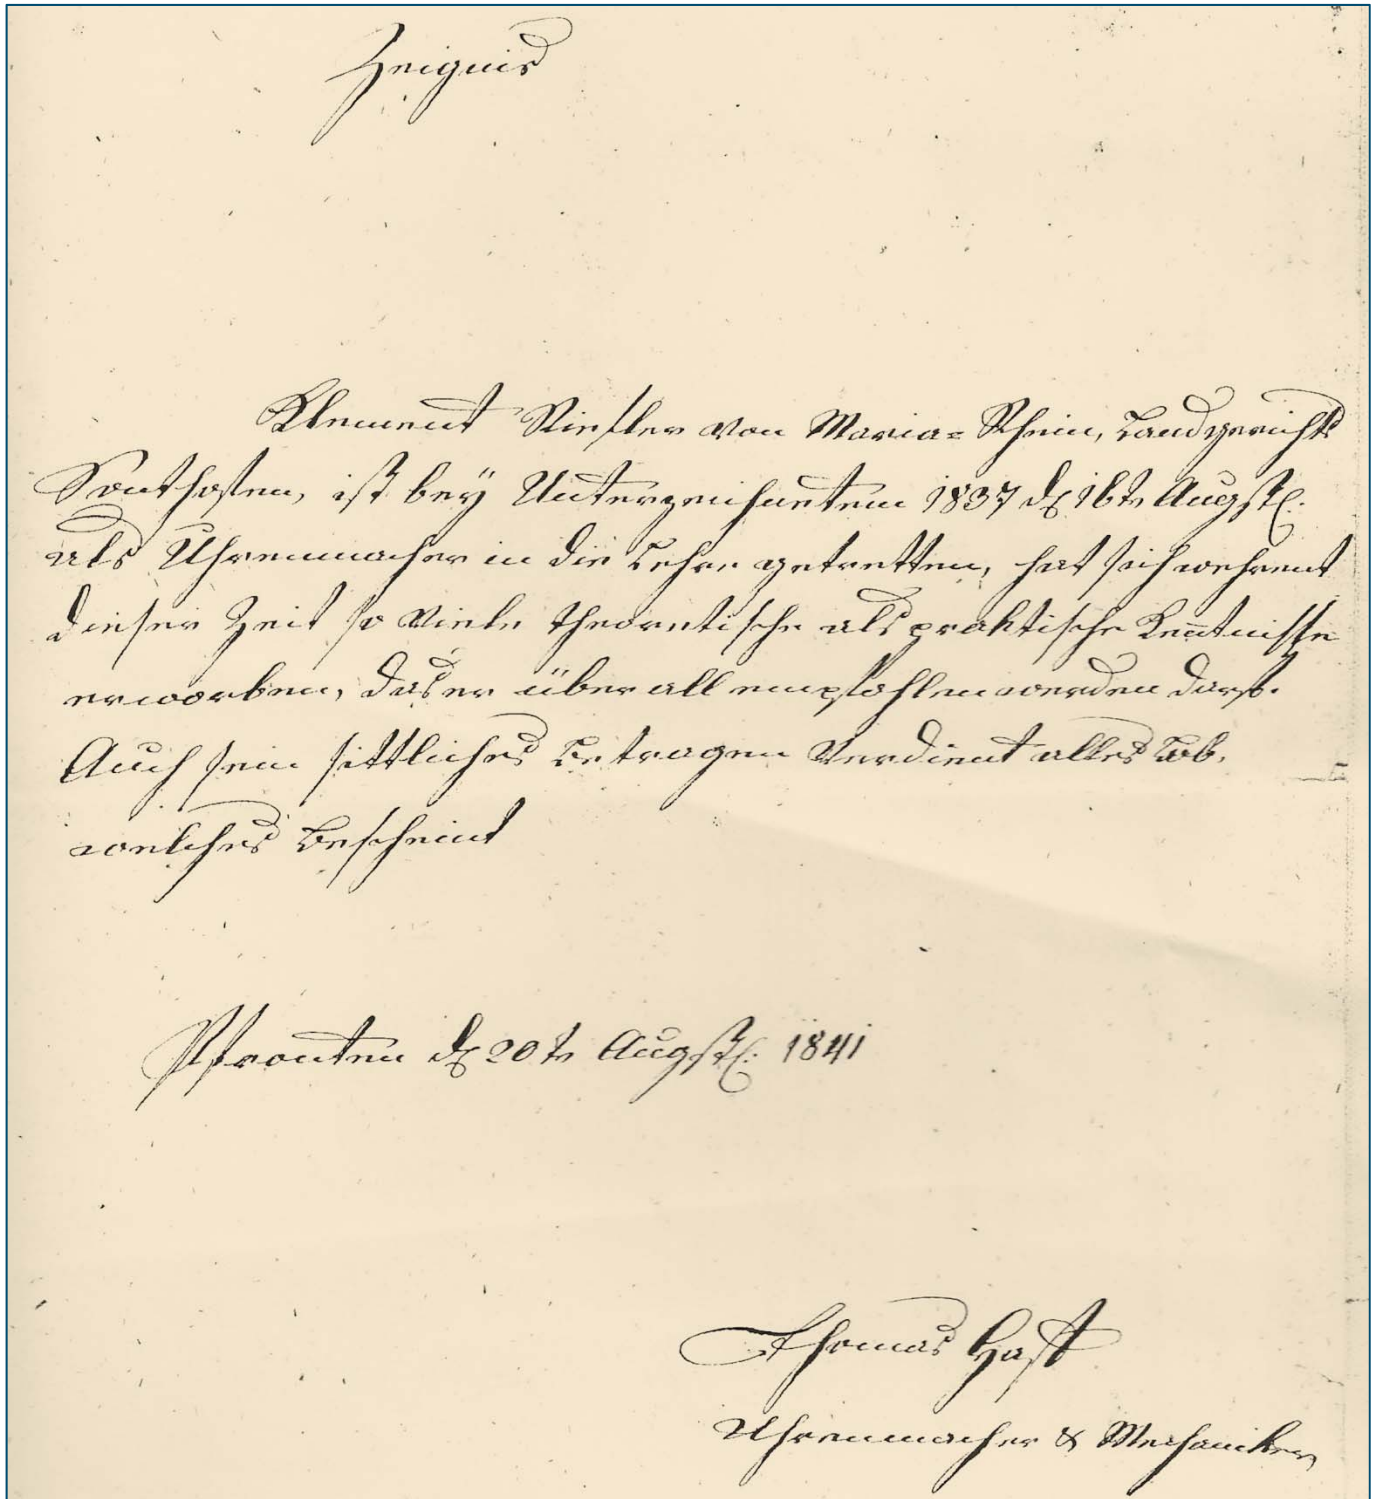 Zeignis
Klement Riefler von Maria=Rhein, Landgerichts
Sonthofen, ist bey Unterzeichnetem 1837 d 16t Augst.
als Uhrenmacher in die Lehre getretten, hat sich wehrent
dieser Zeit so viele theoretische als praktische Keñtnisse
erworben, das er über all empfohlen werden darf.
Auch sein sittliches Betragen verdient alles Lob,
welches bescheint
Pfronten d 20t Augst. 1841
Thomas Haff
Uhrenmacher & Mechaniker